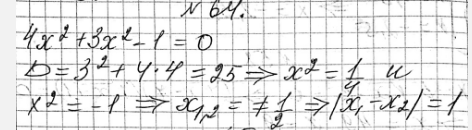 №64.
4x² + 3x² - 1 = 0
D = 3² + 4·4 = 25 ⇒ x² = 1/4 и
x² = -1 ⇒ x₁,₂ = ∓1/2 ⇒ |x₁ - x₂| = 1